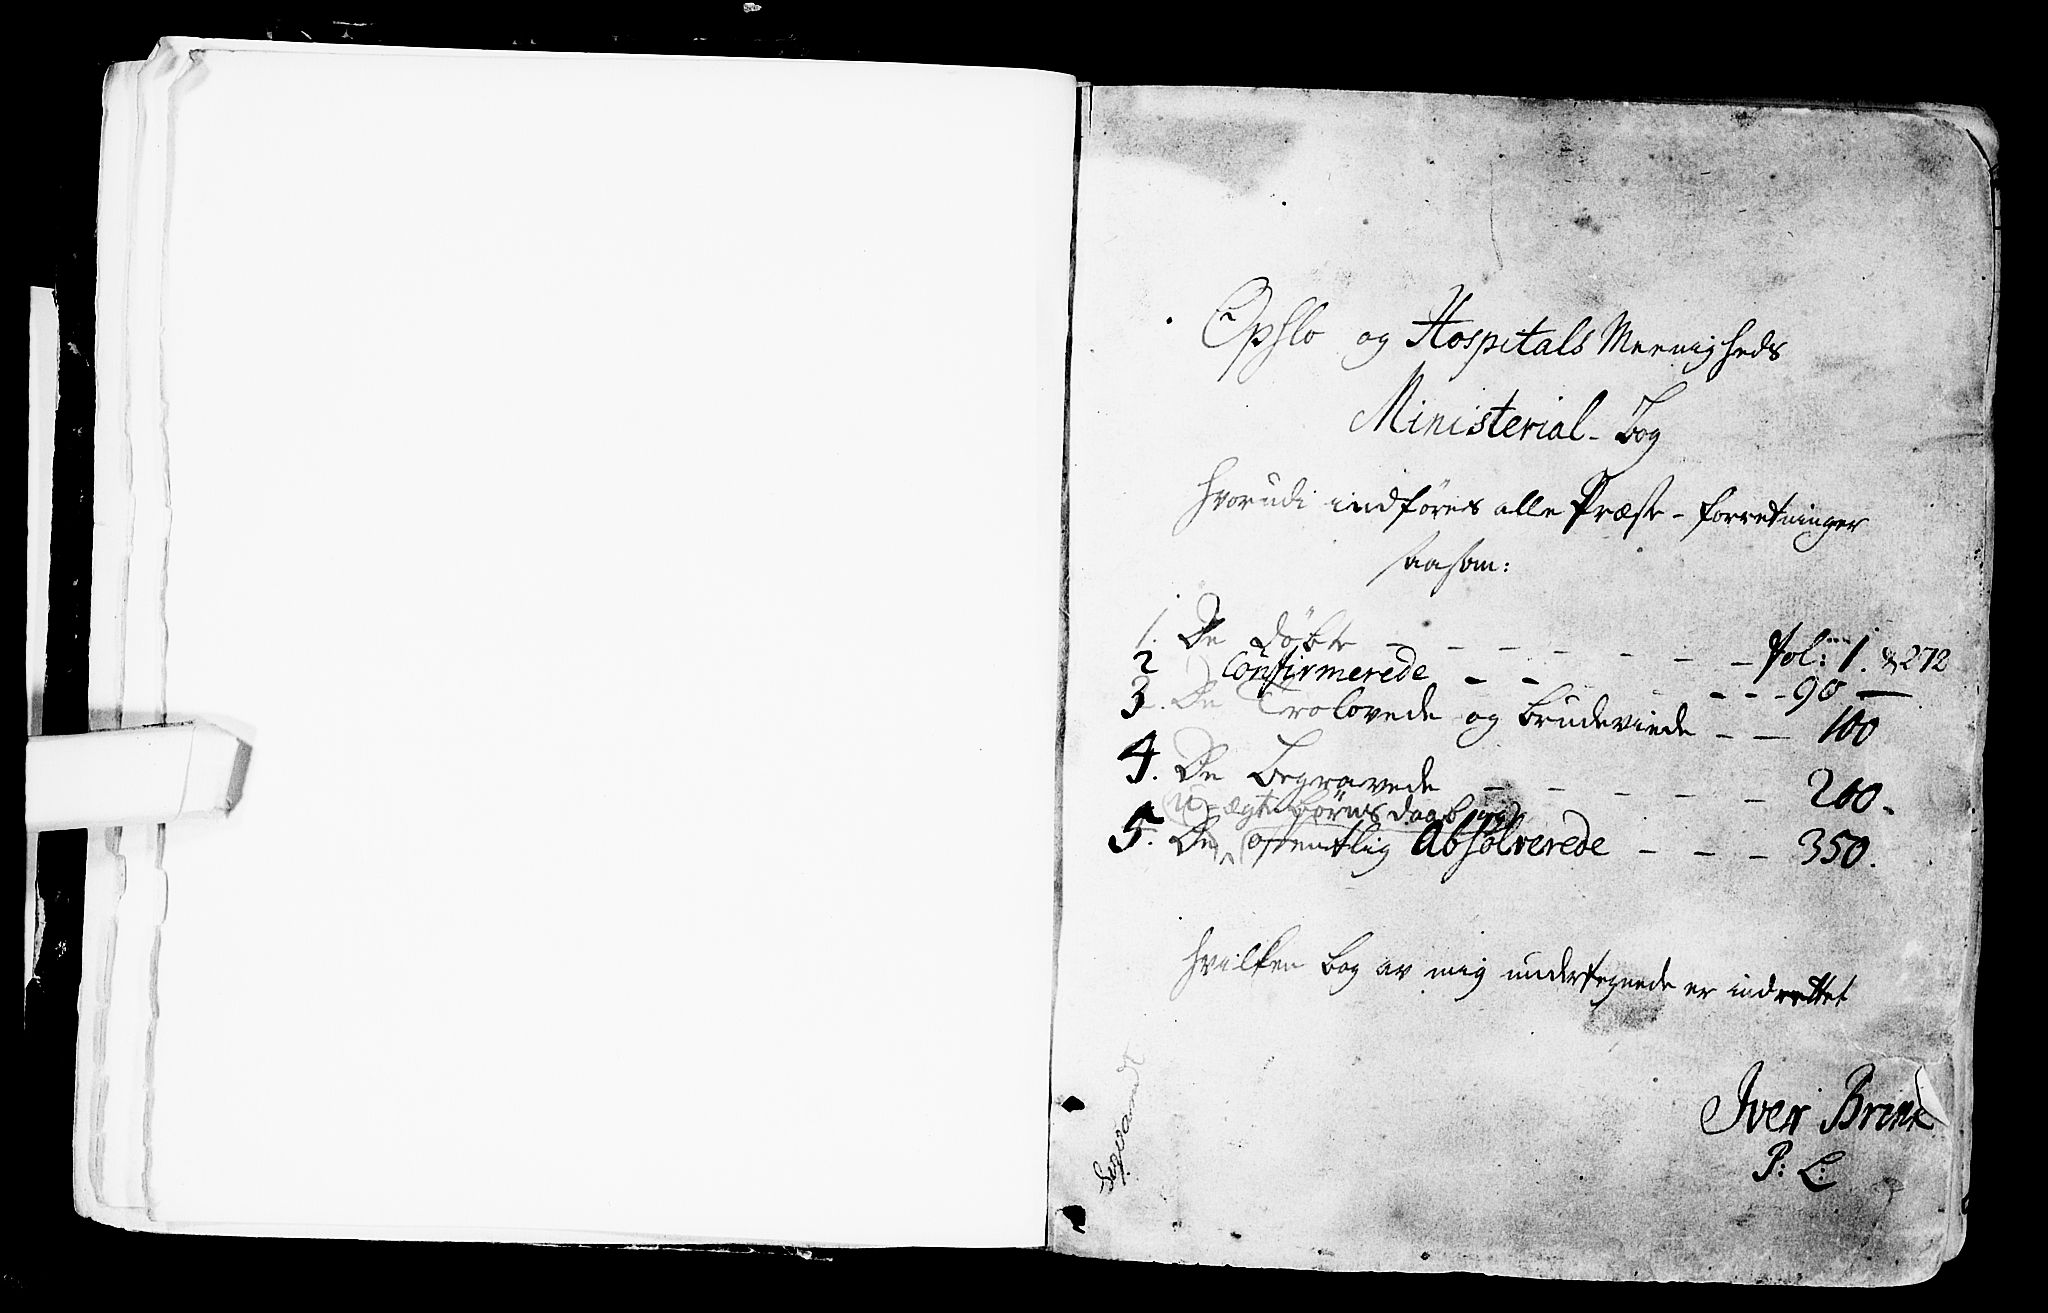 Opslo og Hospitals Menigheds
Ministerial-bog
hvorudi indføres alle Præste-forretninger
saasom:
1. De døbte - - - - - - - Fol: 1. & 272
2 Confirmerede - - - - - 90 —
3. De Trolovede og brudeviede - - 100
4. De begravede - - - - - 200.
u-ægte børns daab og
5. De offentlig Absolverede - - - 350.
hvilken bog av mig undertegnede er indrettet
Iver Brink
P: L: